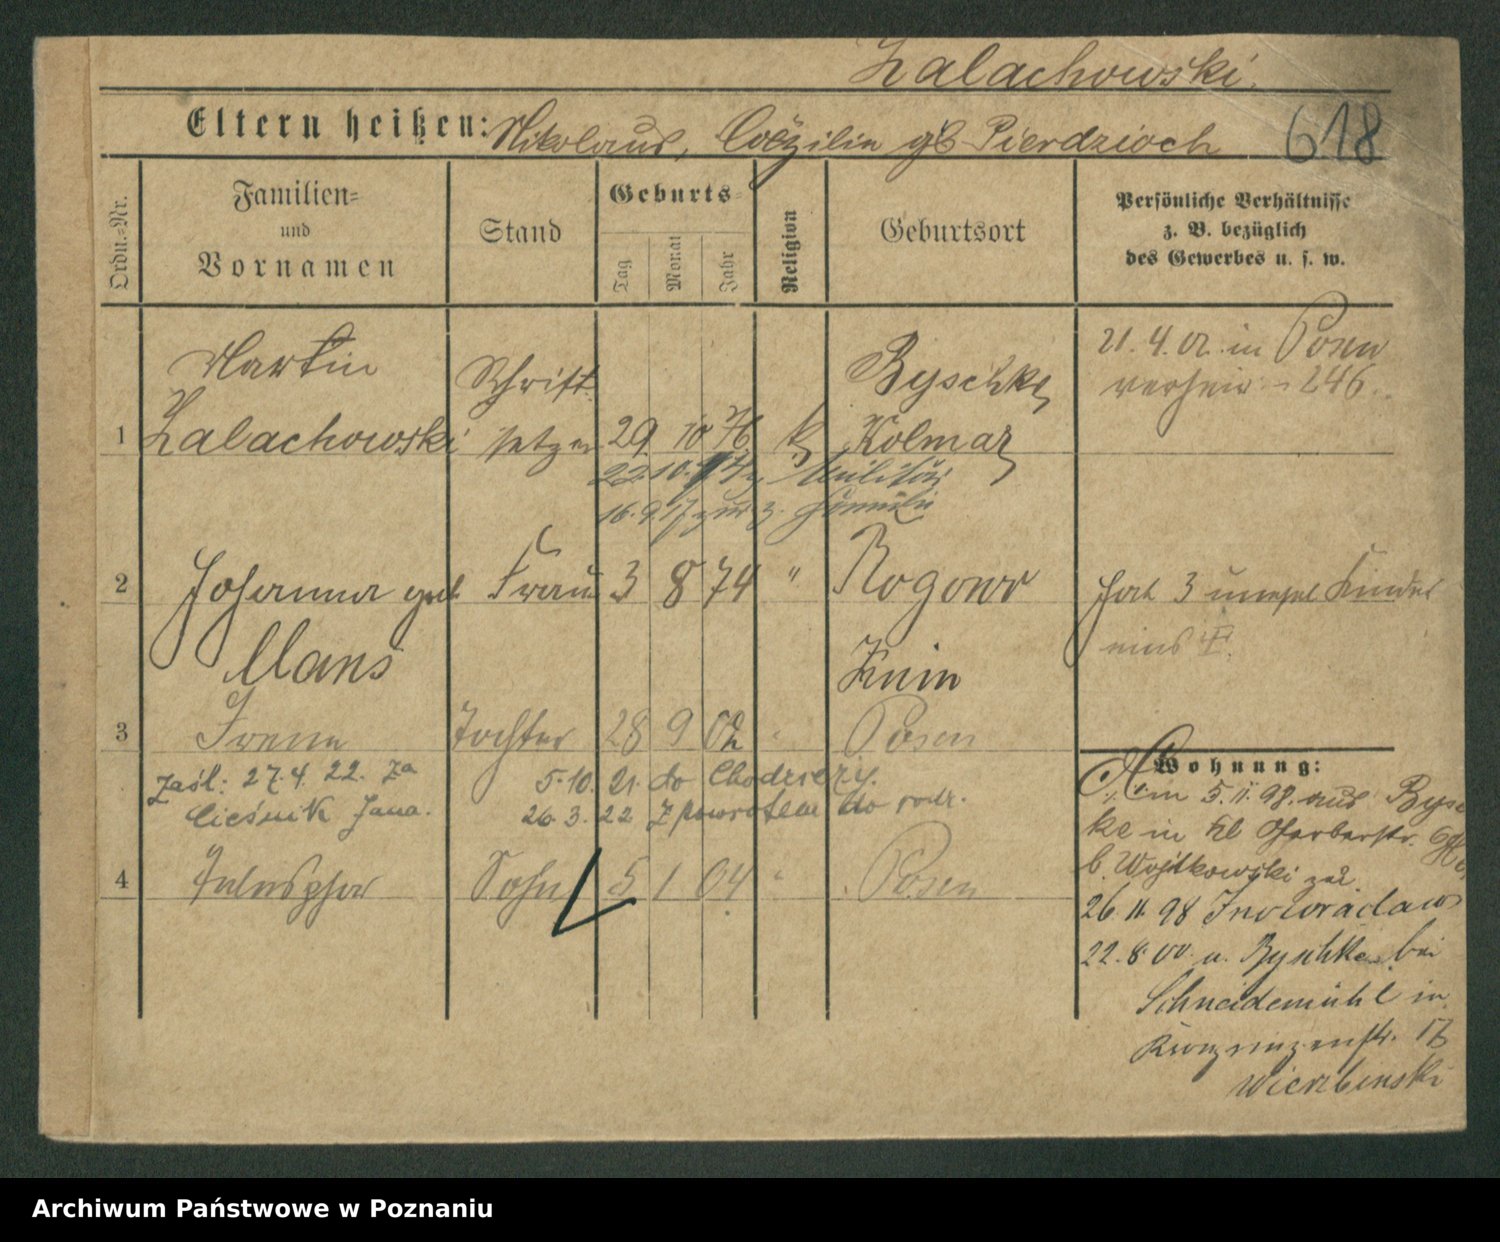 Zalachowski.
Eltern heißen: Nikolaus, Cäzilia gb Pierdzioch 618
Ordn.-Nr.
Familien- und Vornamen
Stand
Geburts-
Tag Monat Jahr
Religion
Geburtsort
Persönliche Verhältnisse
z. B. bezüglich
des Gewerbes u. s. w.
Martin Schrift- Byschke, 21. 4. 02. in Posen
verheir. 246.
1 Zalachowski setzer 29. 10 76 k Kolmar
22. 10. Militär
16. 9. 17 zur z. Familie
2 Johanna geb Frau 3 8 74 " Rogowo hat 3 Kinder
Mans Knin eins
3 Irena Tochter 28 9 02 " Posen
zaśl: 27. 4. 22. za 5. 10. 21. do Chodzieży.
Cieśnik Jana. 26. 3. 22 z powrotem do rodz.
4 Telesphor Sohn 5 1 04 " Posen
Wohnung:
5. 11. 98. aus Bysch
ke in Kl Gerberstr. 6
b. Wojtkowski zur.
26. 11. 98 Inowraclaw
22. 8. 00. a. Byschke bei
Schneidemühl in
Kronprinzenstr. 17
Wierzbinski
Archiwum Państwowe w Poznaniu